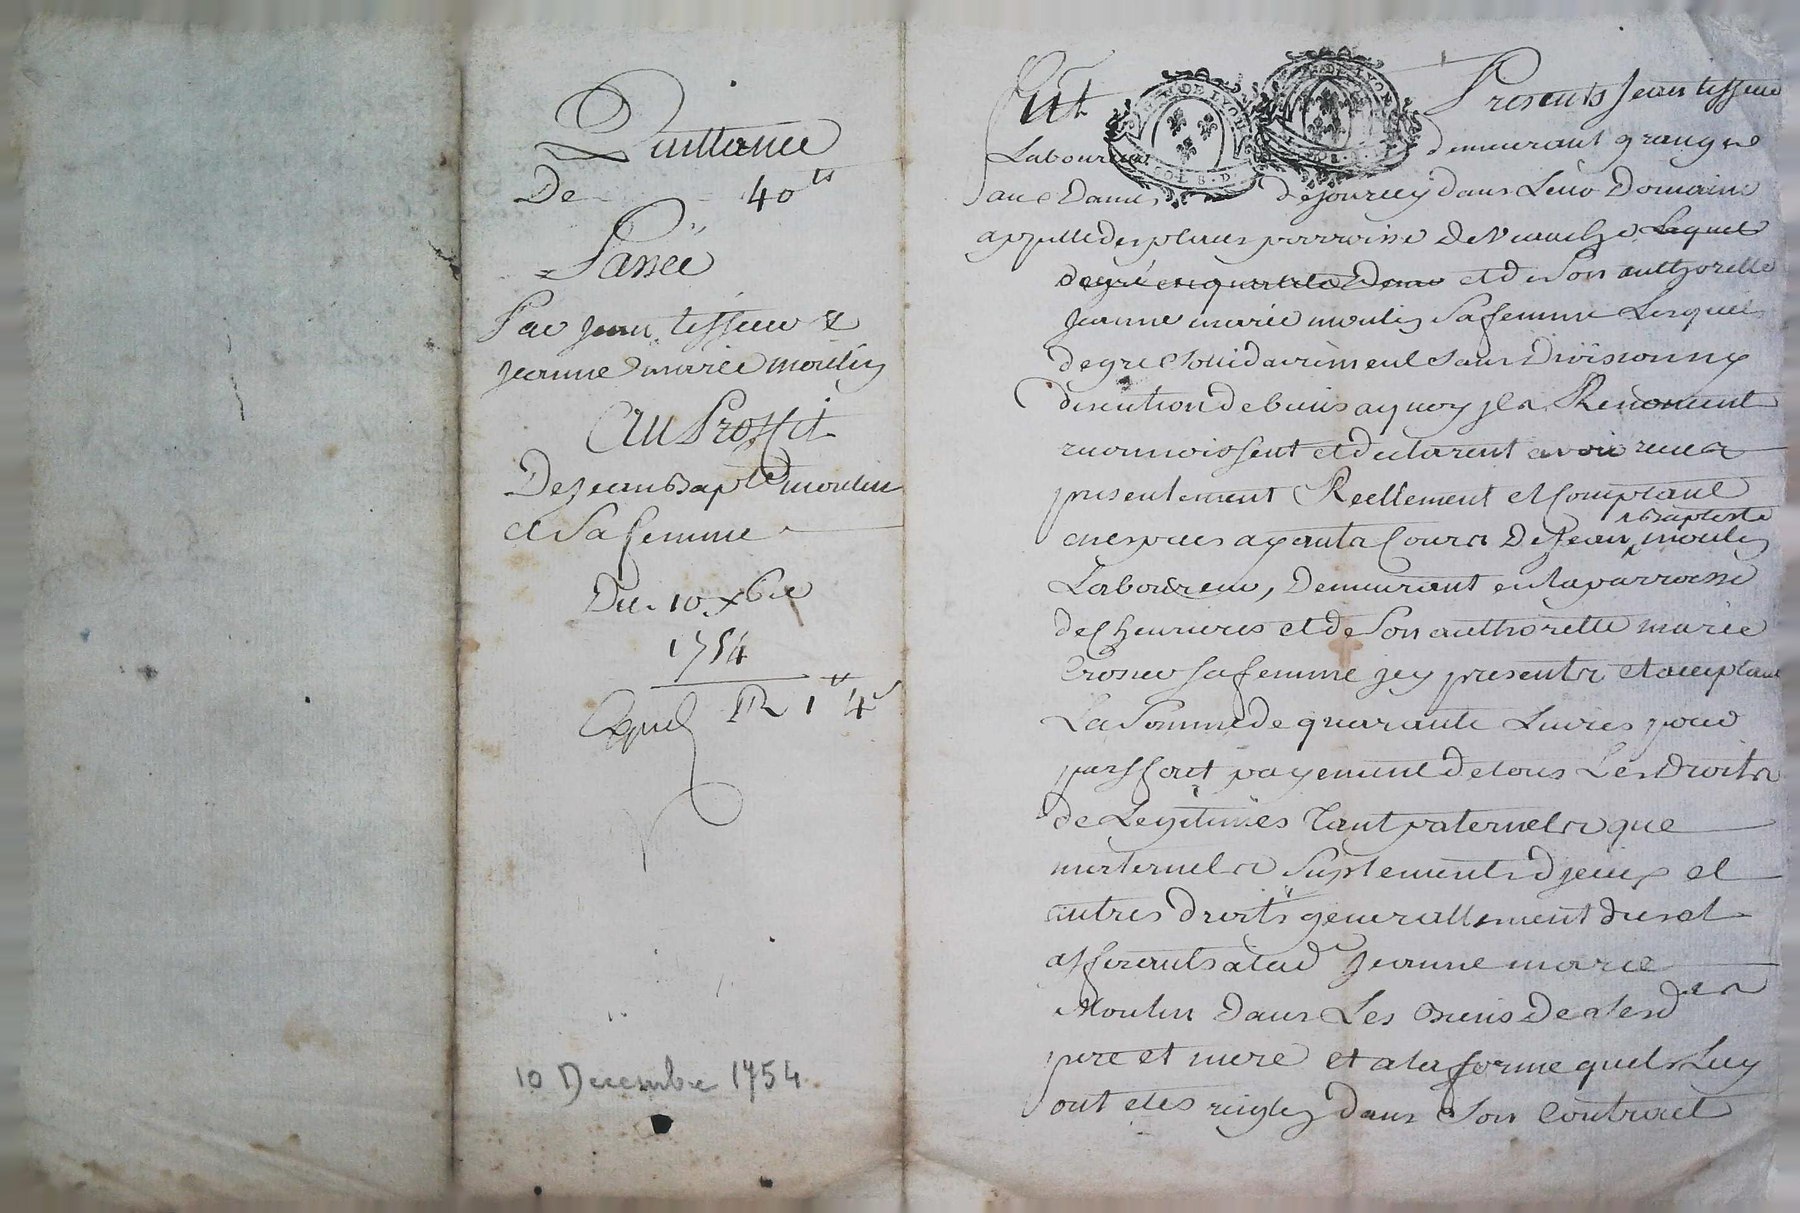 Quittance
De 40ᵗᵗ
Passée
Par jean tisseur &
jeanne marie moulin
Au Proffit
De jean Bapᵗᵉ moulin
et Sa femme
Du 10 xbre
1754
R 1ᵗᵗ 4ˢ
10 Decembre 1754
Fut Presents Jean tisseur
Laboureur demeurant granger
des Dames de jourcey dans Leur Domaine
appellé des places parroisse De Lequel
degré et de Son authorette
jeanne marie moulin Sa femme Lesquels
degré solidairement sans Division ny
discution de biens a quoy jls Renoncent
reconnoissent et declarent avoir receu
presentement Reellement et Comptant
en especes ayants Cours De Jean Baptiste moulin
Laboureur, Demeurant en la parroisse
de Chevrieres et de Son authorette marie
sa femme jcy presents et acceptant
La Somme de quarante Livres pour
parffait payement de tous Les Droits
de Legitimes Tant paternels que
maternels Suplements djceux et
autres droits generallement dus et
afferants a lad jeanne marie
Moulin dans Les Biens De sesdᵗˢ
pere et mere et a la forme quels Luy
ont etes reiglez dans Son Contract